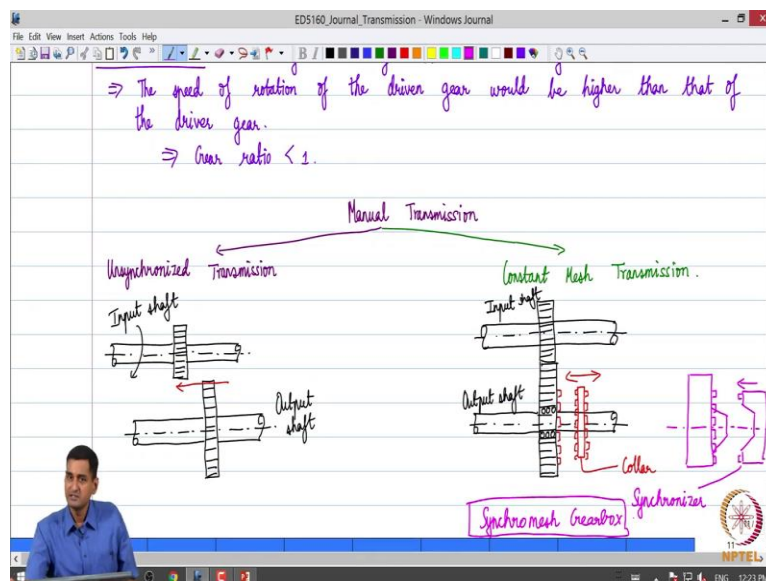 ED5160_Journal_Transmission - Windows Journal
File Edit View Insert Actions Tools Help
⇒ The speed of rotation of the driven gear would be higher than that of
the driver gear.
⇒ Gear ratio < 1.
Manual Transmission
Unsynchronized Transmission
Constant Mesh Transmission.
Input shaft
Input shaft
Output shaft
Output shaft
Collar
Synchronizer
Synchromesh Gearbox
NPTEL
ENG 12:23 PM